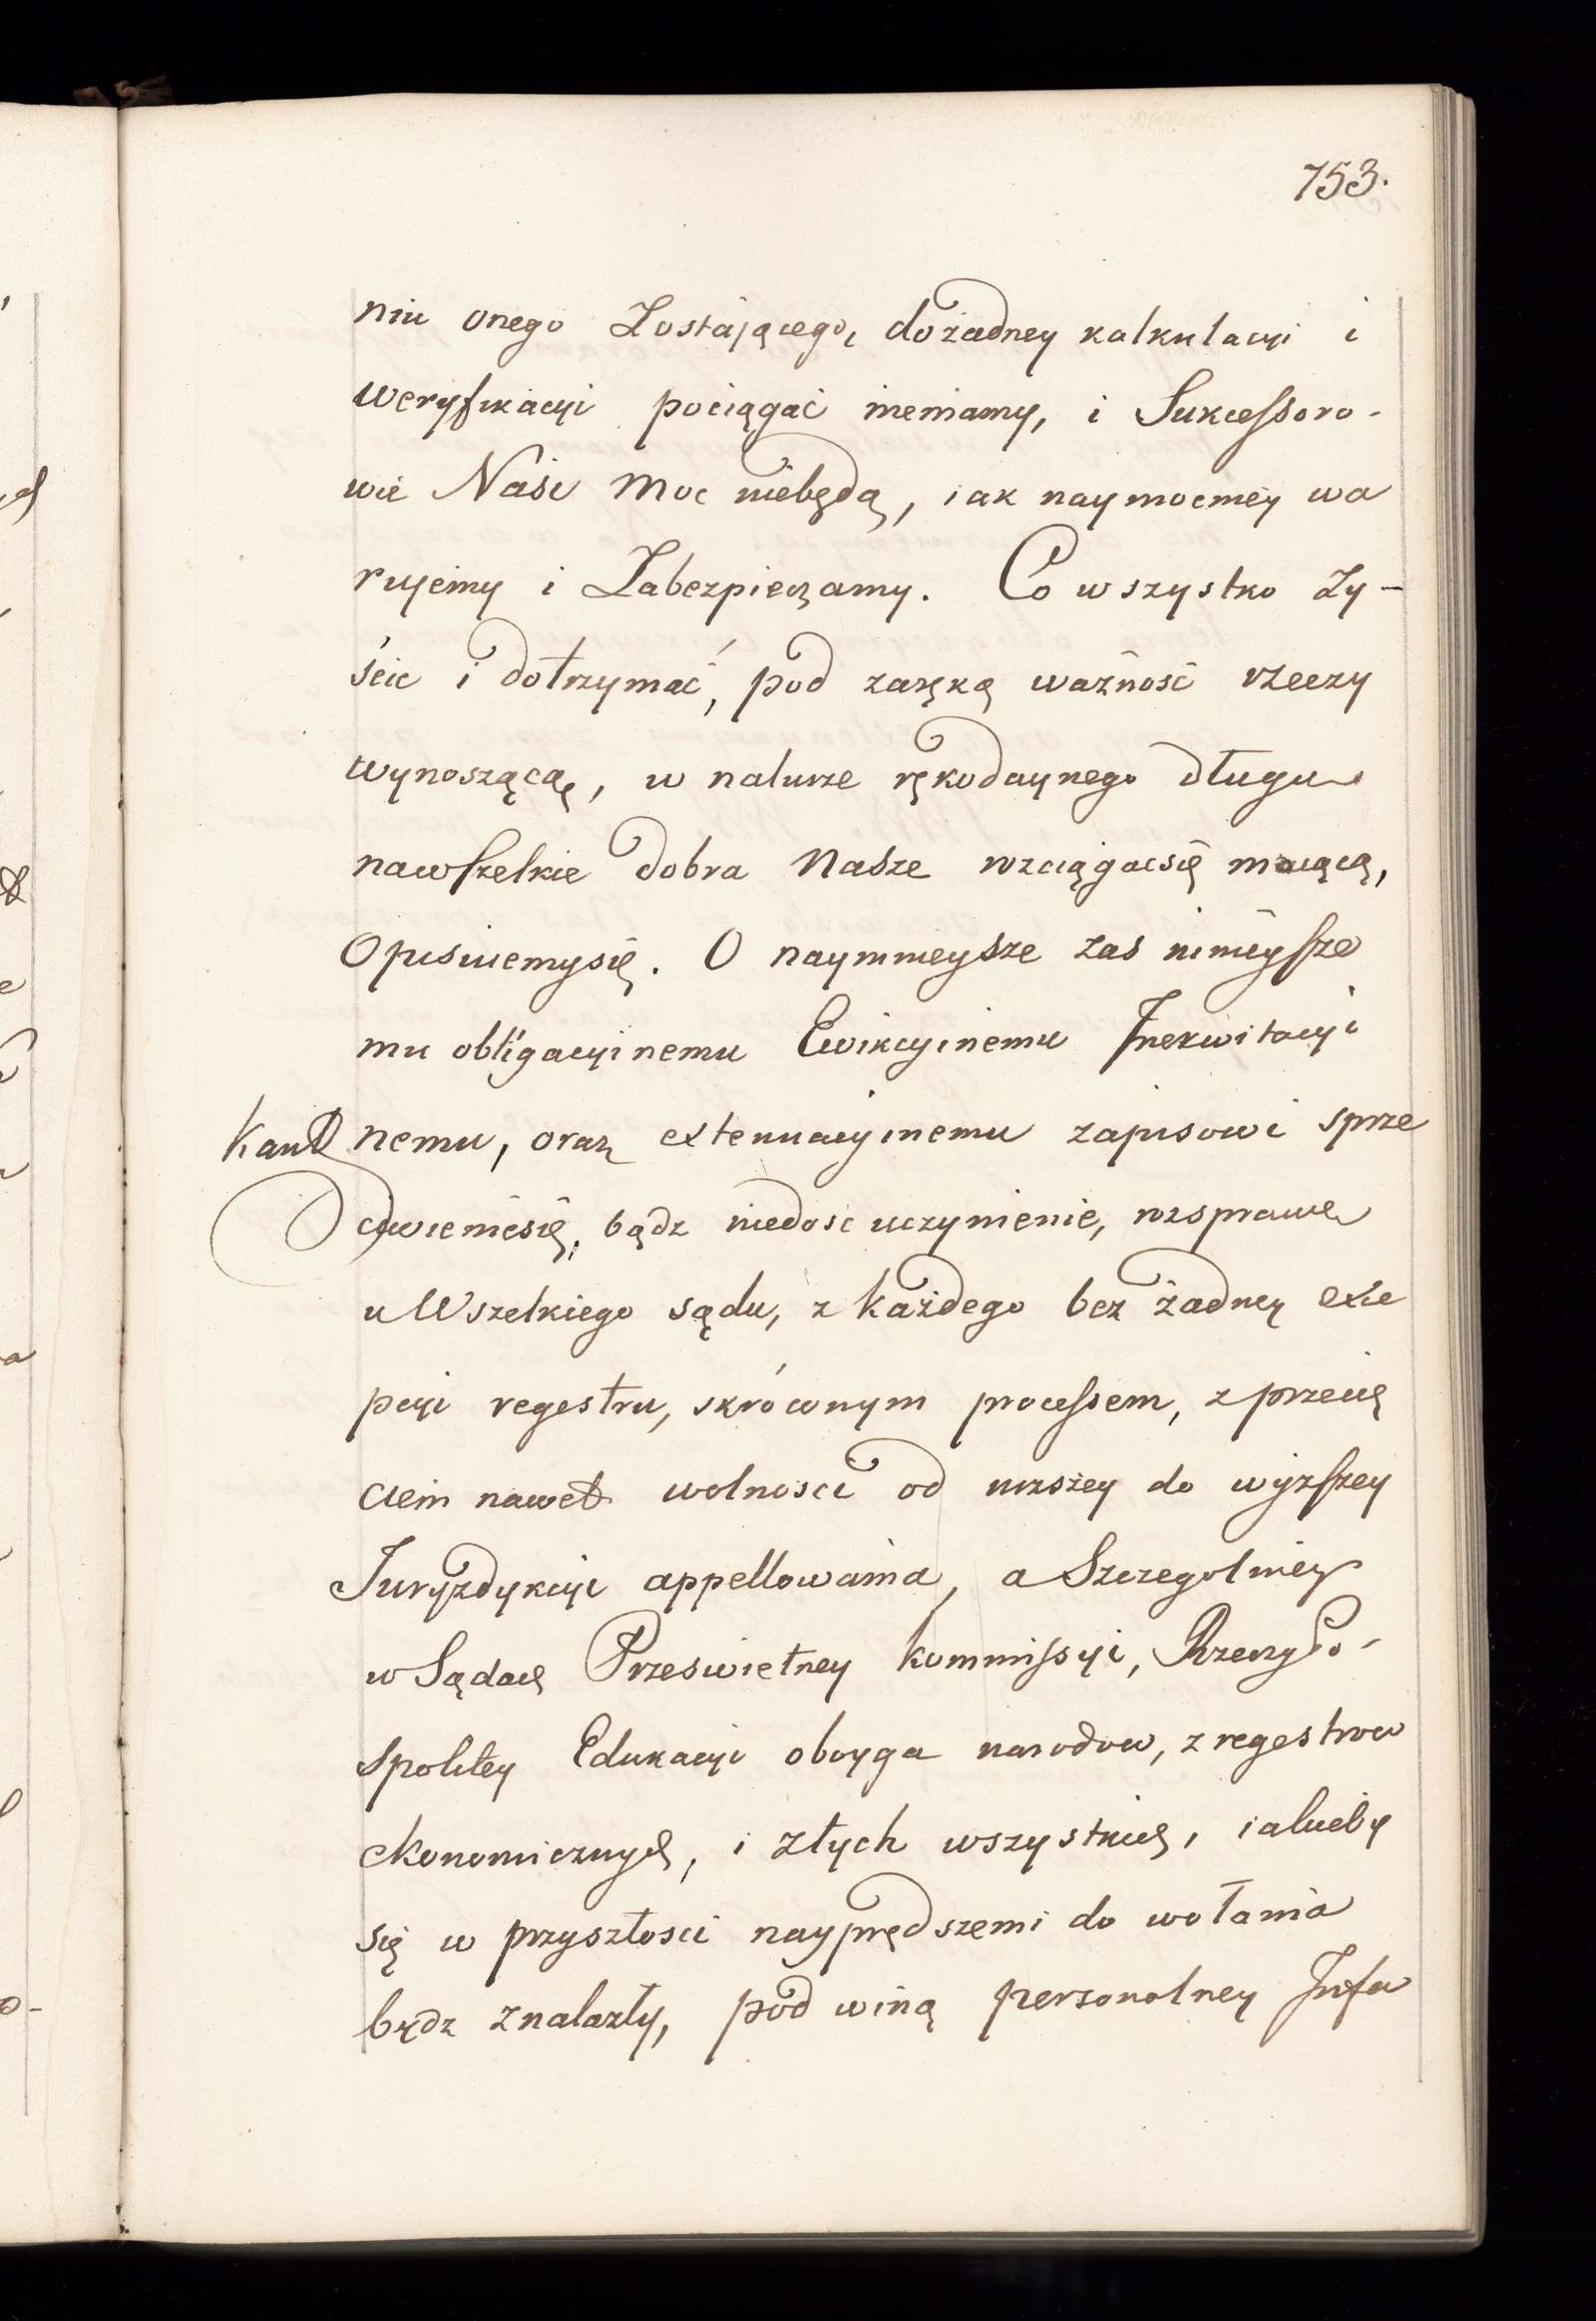 753.
niu onego Zostającego, dożadney kalkulacyi i
weryfikacyi pociągać niemamy, i Sukcessoro-
wie Nasi Moc niebędą, iak naymocniey wa
rujemy i Zabezpieczamy. Co wszystko Zy-
ścic i dotrzymać, pod zaręką ważność rzeczy
wynoszącą, w naturze rękodaynego długu
nawszelkie dobra Nasze rozciągacsię maiącą,
Opisuiemysię. O naymnieysze zas ninieysze
mu obligacyinemu Ewikcyinemu Inekwitacyi
nemu, oraz extenuacyinemu zapisowi sprze
ciwieniesię, bądz niedosc uczynienie, rozsprawę
u Wszelkiego sądu, z każdego bez żadney exce
pcyi regestru, skróconym processem, z przecię
ciem nawet wolnosci od niższey do wyższey
Juryzdykcyi appellowania, a Szczegolniey
w Sądach Przeswietney kommissyi, RzeczyPo-
spolitey Edukacyi oboyga narodow, z regestrow
ekonomicznych, i złych wszystkich, iakieby
się w przyszłosci nayprędszemi do wołania
będz znalazły, pod winą personalney Infa